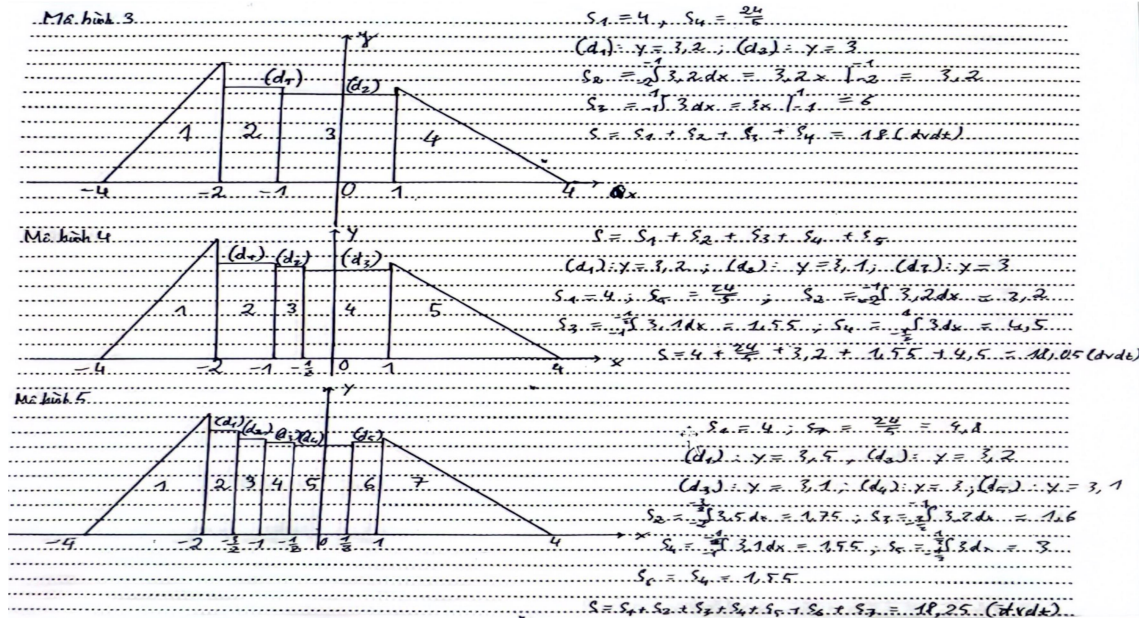 Mô hình 3
y
(d₁)
(d₂)
1 2 3 4
-4 -2 -1 0 1 4 x
S₁ = 4, S₄ = 24/5
(d₁): y = 3,2 ; (d₂): y = 3
S₂ = ₋₂∫⁻¹ 3,2dx = 3,2x |₋₂⁻¹ = 3,2
S₃ = ₋₁∫¹ 3dx = 3x |₋₁¹ = 6
S = S₁ + S₂ + S₃ + S₄ = 18 (dvdt)
Mô hình 4
y
(d₁) (d₂) (d₃)
1 2 3 4 5
-4 -2 -1 -1/2 0 1 4 x
S = S₁ + S₂ + S₃ + S₄ + S₅
(d₁): y = 3,2 ; (d₂): y = 3,1; (d₃): y = 3
S₁ = 4 ; S₅ = 24/5 ; S₂ = ₋₂∫⁻¹ 3,2dx = 3,2
S₃ = ₋₁∫^(-1/2) 3,1dx = 1,55 ; S₄ = ₋₁/₂∫¹ 3dx = 4,5
S = 4 + 24/5 + 3,2 + 1,55 + 4,5 = 18,05 (dvdt)
Mô hình 5
y
(d₁) (d₂) (d₃) (d₄) (d₅)
1 2 3 4 5 6 7
-4 -2 -3/2 -1 -1/2 0 1/2 1 4 x
S₁ = 4 ; S₇ = 24/5 = 4,8
(d₁): y = 3,5 , (d₂): y = 3,2
(d₃): y = 3,1 ; (d₄): y = 3 ; (d₅): y = 3,1
S₂ = ₋₂∫^(-3/2) 3,5dx = 1,75 ; S₃ = ₋₃/₂∫⁻¹ 3,2dx = 1,6
S₄ = ₋₁∫^(-1/2) 3,1dx = 1,55 ; S₅ = ₋₁/₂∫^(1/2) 3dx = 3
S₆ = S₄ = 1,55
S = S₁ + S₂ + S₃ + S₄ + S₅ + S₆ + S₇ = 18,25 (dvdt)